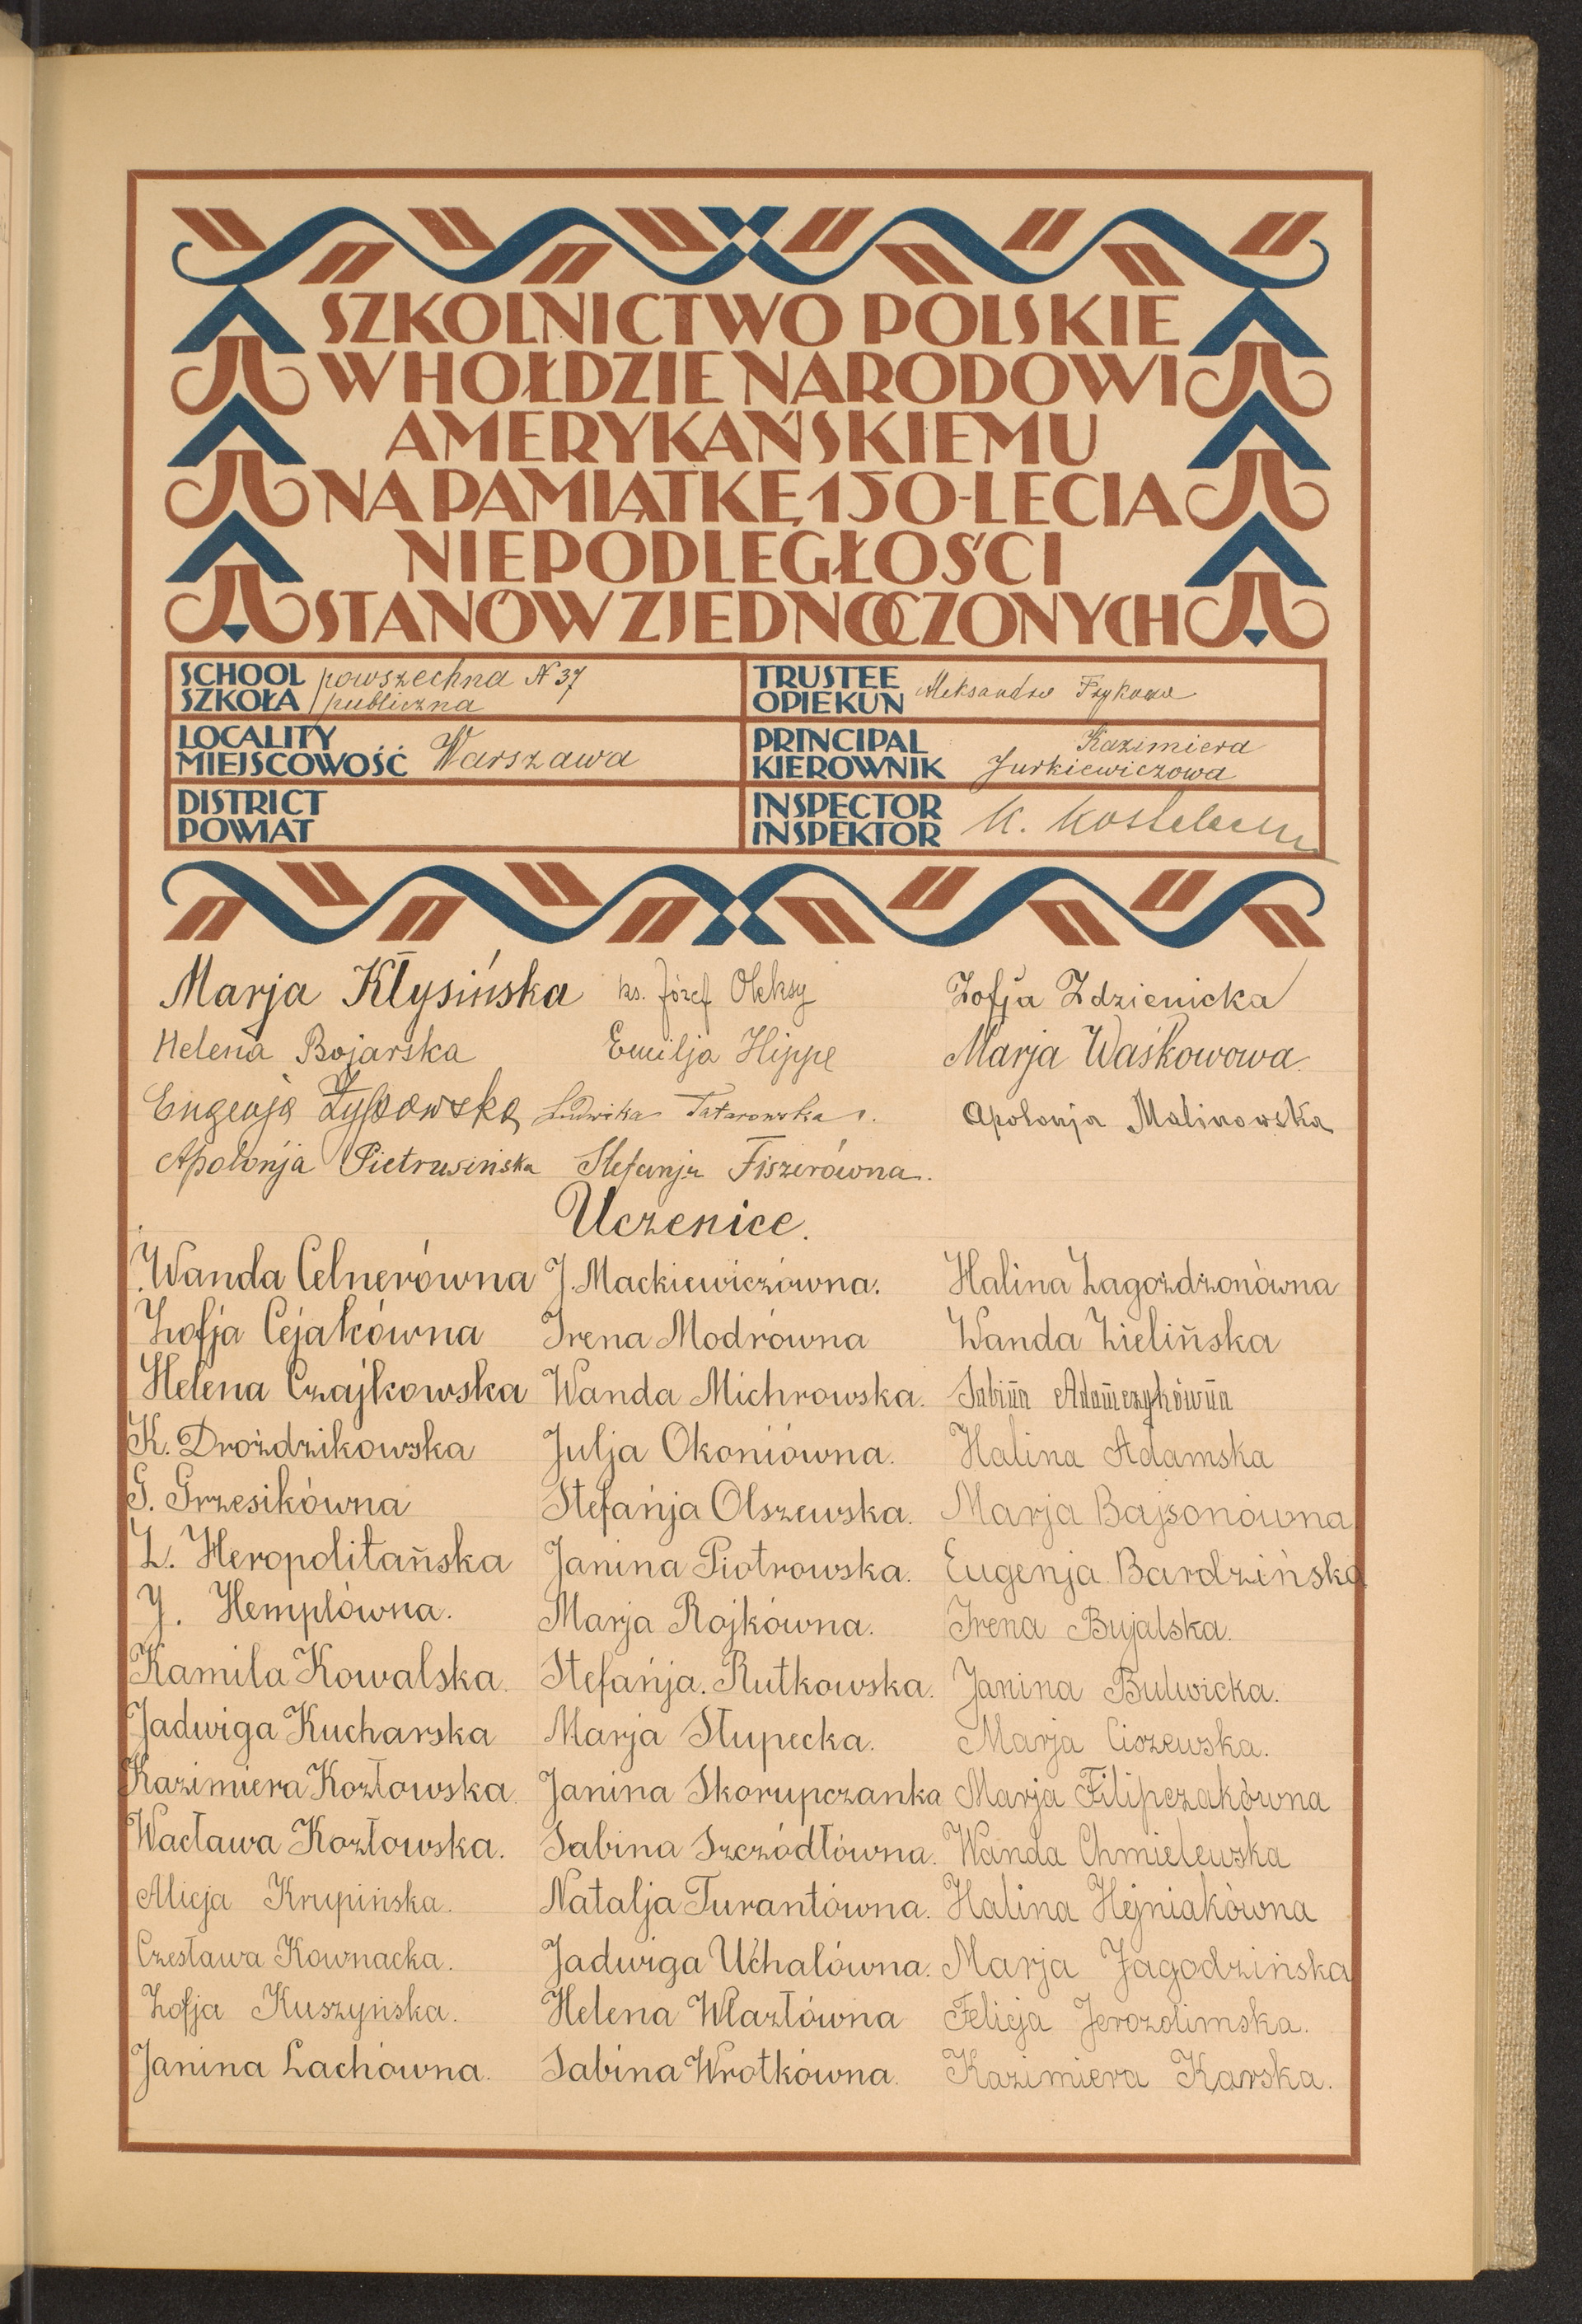 SZKOLNICTWO POLSKIE
W HOŁDZIE NARODOWI
AMERYKAŃSKIEMU
NA PAMIĄTKĘ 150-LECIA
NIEPODLEGŁOŚCI
STANÓW ZJEDNOCZONYCH
SCHOOL powszechna N 37
SZKOŁA publiczna
TRUSTEE
OPIEKUN Aleksandra
LOCALITY
MIEJSCOWOŚĆ Warszawa
PRINCIPAL Kazimiera
KIEROWNIK Jurkiewiczowa
DISTRICT
POWIAT
INSPECTOR
INSPEKTOR K.
Marja Kłysińska ks. Józef Oleksy Zofja Zdzienicka
Helena Bojarska Emilja Hippe Marja Waśkowowa.
Eugenja Ludwika Tatarowska Apolonja Malinowska
Apolonja Pietrusińska Stefanja Fiszerówna.
Uczenice.
Wanda Celnerówna J. Mackiewiczówna. Halina Zagożdżonówna
Zofja Cejakówna Irena Modrówna Wanda Zielińska
Helena Czajkowska Wanda Michrowska. Sabina Adamczykówna
K. Drożdzikowska Julja Okoniówna. Halina Adamska
G. Grzesikówna Stefańja Olszewska. Marja Bajsonówna
Z. Heropolitańska Janina Piotrowska. Eugenja Bardzińska
J. Hemplówna. Marja Rojkówna. Irena Bujalska.
Kamila Kowalska. Stefańja. Rutkowska. Janina Bulwicka.
Jadwiga Kucharska Marja Słupecka. Marja Ciszewska.
Kazimiera Kozłowska. Janina Skorupczanka Marja Filipczakówna
Wacława Kozłowska. Sabina Szczódłówna. Wanda Chmielewska
Alicja Krupińska. Natalja Turantówna. Halina Hejniakówna
Czesława Kownacka. Jadwiga Uchalówna. Marja Jagodzińska
Zofja Kuszyńska. Helena Wlazłówna Felicja Jerozolimska.
Janina Lachówna. Sabina Wrotkówna. Kazimiera Karska.